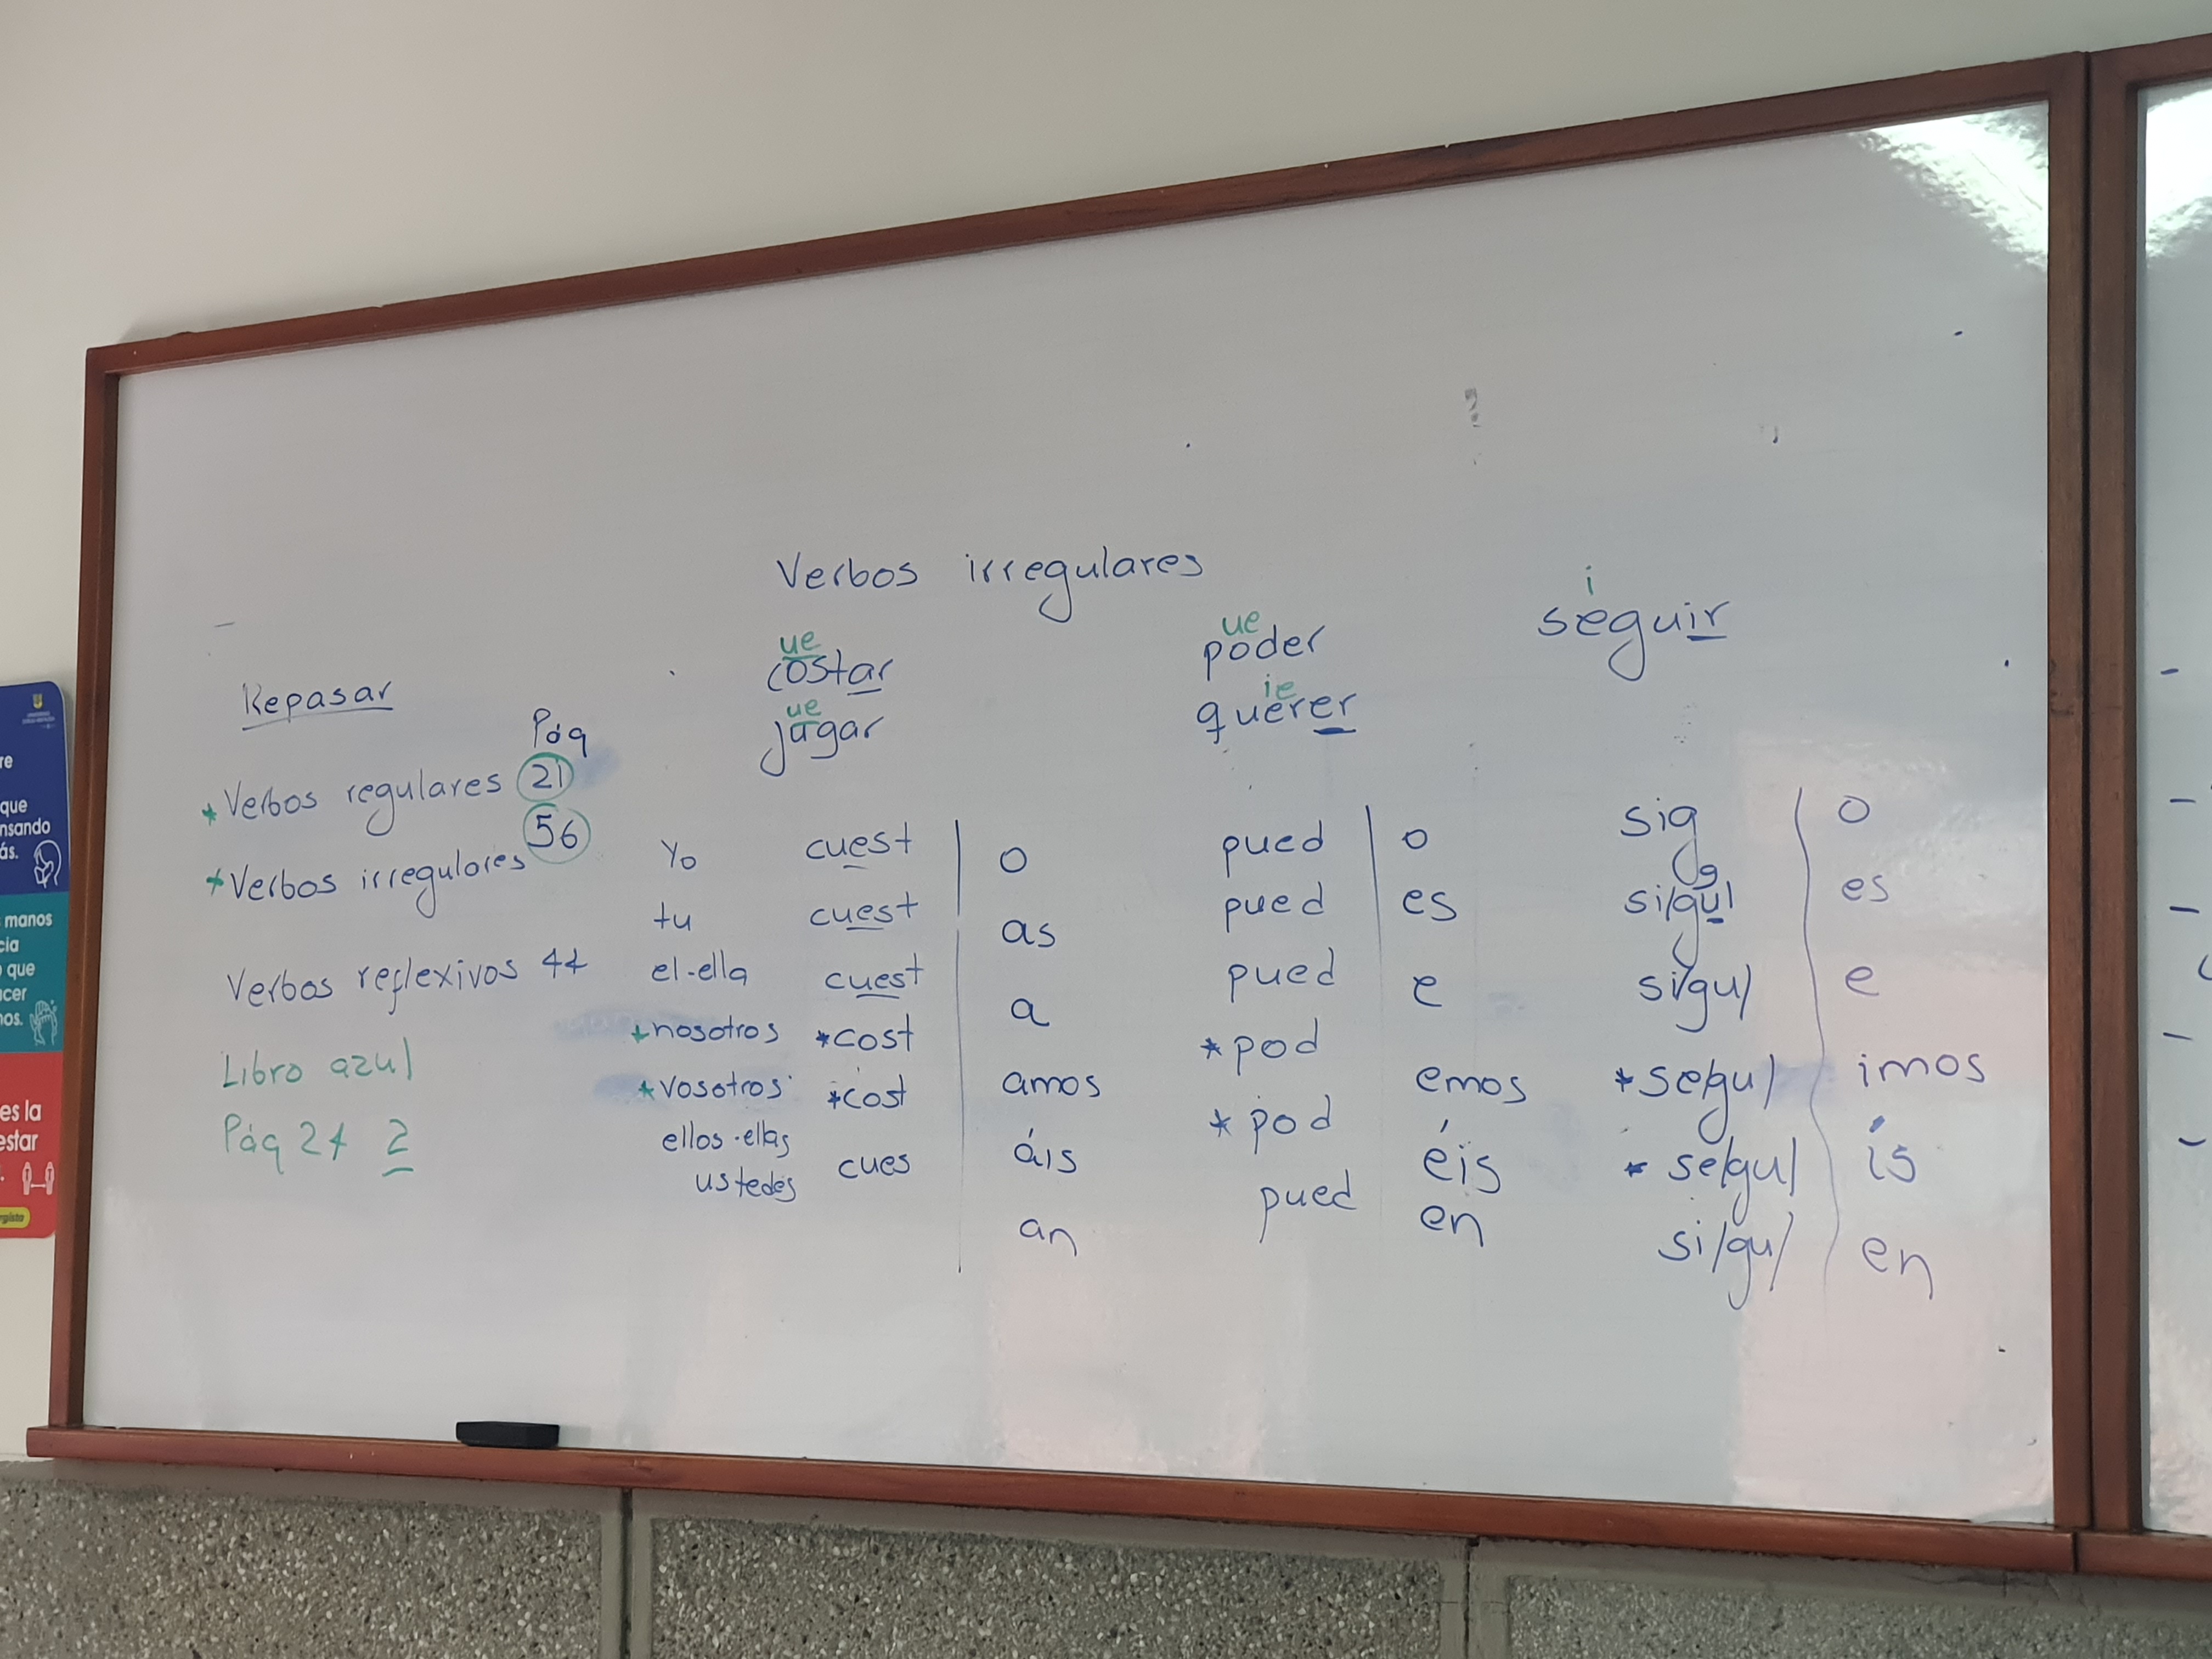 Verbos irregulares
Repasar
Pág
* Verbos regulares 21
56
* Verbos irregulares
Verbos reflexivos 44
Libro azul
Pág 24 2
ue
costar
ue
jugar
ue
poder
ie
querer
i
seguir
Yo cuest o pued o sig o
tu cuest as pued es si/gu/ es
el-ella cuest a pued e si/gu/ e
* nosotros * cost amos * pod emos * se/gu/ imos
* vosotros * cost áis * pod éis * se/gu/ ís
ellos-ellas
ustedes cues an pued en si/gu/ en
re
que
nsando
ás.
manos
cia
que
cer
nos.
es la
estar